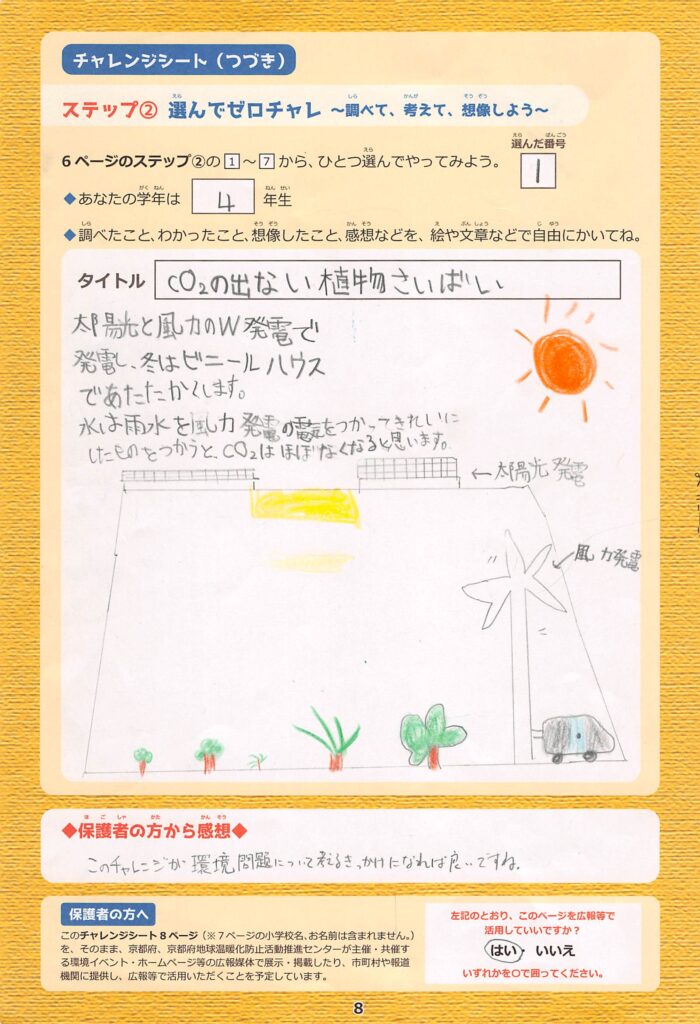 チャレンジシート（つづき）
ステップ② 選んでゼロチャレ ～調べて、考えて、想像しよう～
選んだ番号
6ページのステップ②の1～7から、ひとつ選んでやってみよう。
1
◆あなたの学年は 4 年生
◆調べたこと、わかったこと、想像したこと、感想などを、絵や文章などで自由にかいてね。
タイトル CO2の出ない植物さいばい
太陽光と風力のW発電で
発電し、冬はビニールハウス
であたたかくします。
水は雨水を風力発電の電気をつかってきれいに
したものをつかうと、CO2はほぼなくなると思います。
←太陽光発電
風力発電
◆保護者の方から感想◆
このチャレンジが環境問題について考えるきっかけになれば良いですね。
保護者の方へ
このチャレンジシート8ページ（※7ページの小学校名、お名前は含まれません。）
を、そのまま、京都府、京都府地球温暖化防止活動推進センターが主催・共催す
る環境イベント・ホームページ等の広報媒体で展示・掲載したり、市町村や報道
機関に提供し、広報等で活用いただくことを予定しています。
左記のとおり、このページを広報等で
活用していいですか？
はい・いいえ
いずれかを○で囲ってください。
8